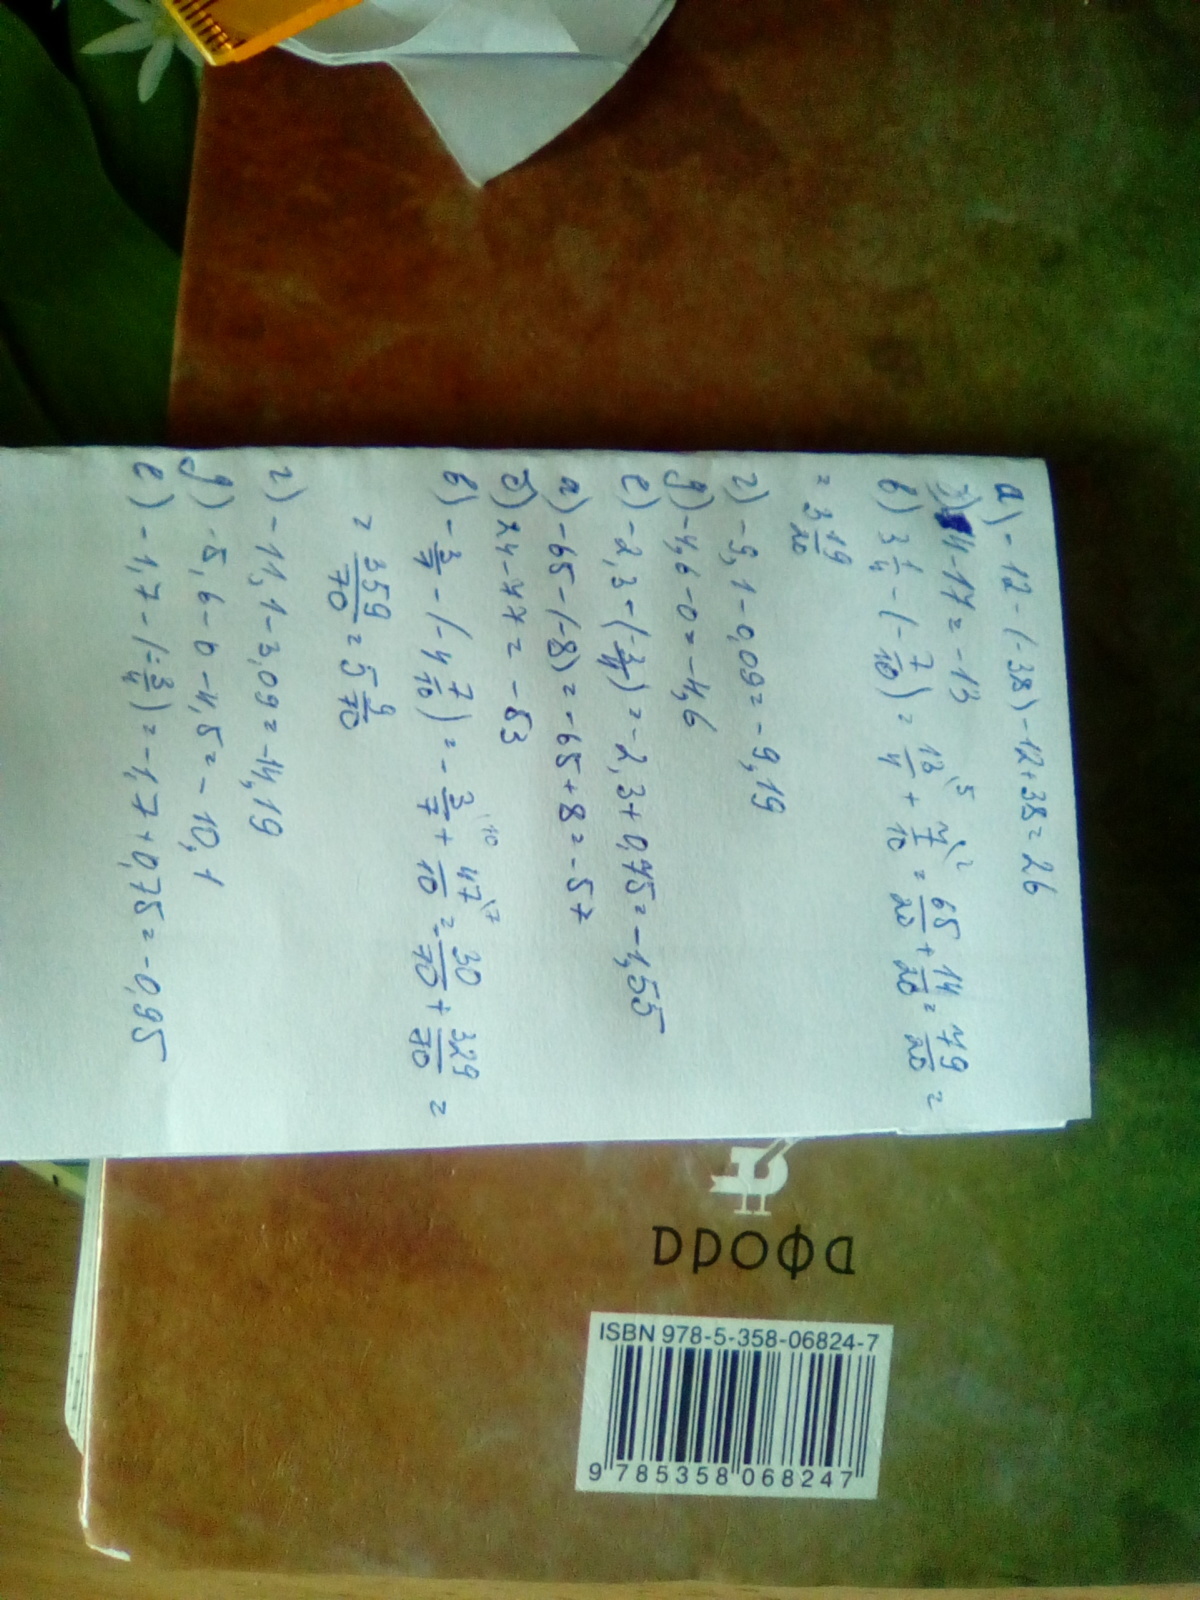 а) -12-(-38)-12+38=26
б) 4-17=-13
в) 3 1/4 - (-7/10) = 13/4\5 + 7/10\2 = 65/20 + 14/20 = 79/20 =
= 3 19/20
г) -9,1-0,09=-9,19
д) -4,6-0=-4,6
е) -2,3-(-3/4)=-2,3+0,75=-1,55
а) -65-(-8)=-65+8=-57
б) 24-77=-53
в) -3/7 - (-4 7/10) = -3/7\10 + 47/10\7 = -30/70 + 329/70 =
= 359/70 = 5 9/70
г) -11,1-3,09=-14,19
д) -5,6-0-4,5=-10,1
е) -1,7-(-3/4)=-1,7+0,75=-0,95
дрофа
ISBN 978-5-358-06824-7
9 785358 068247